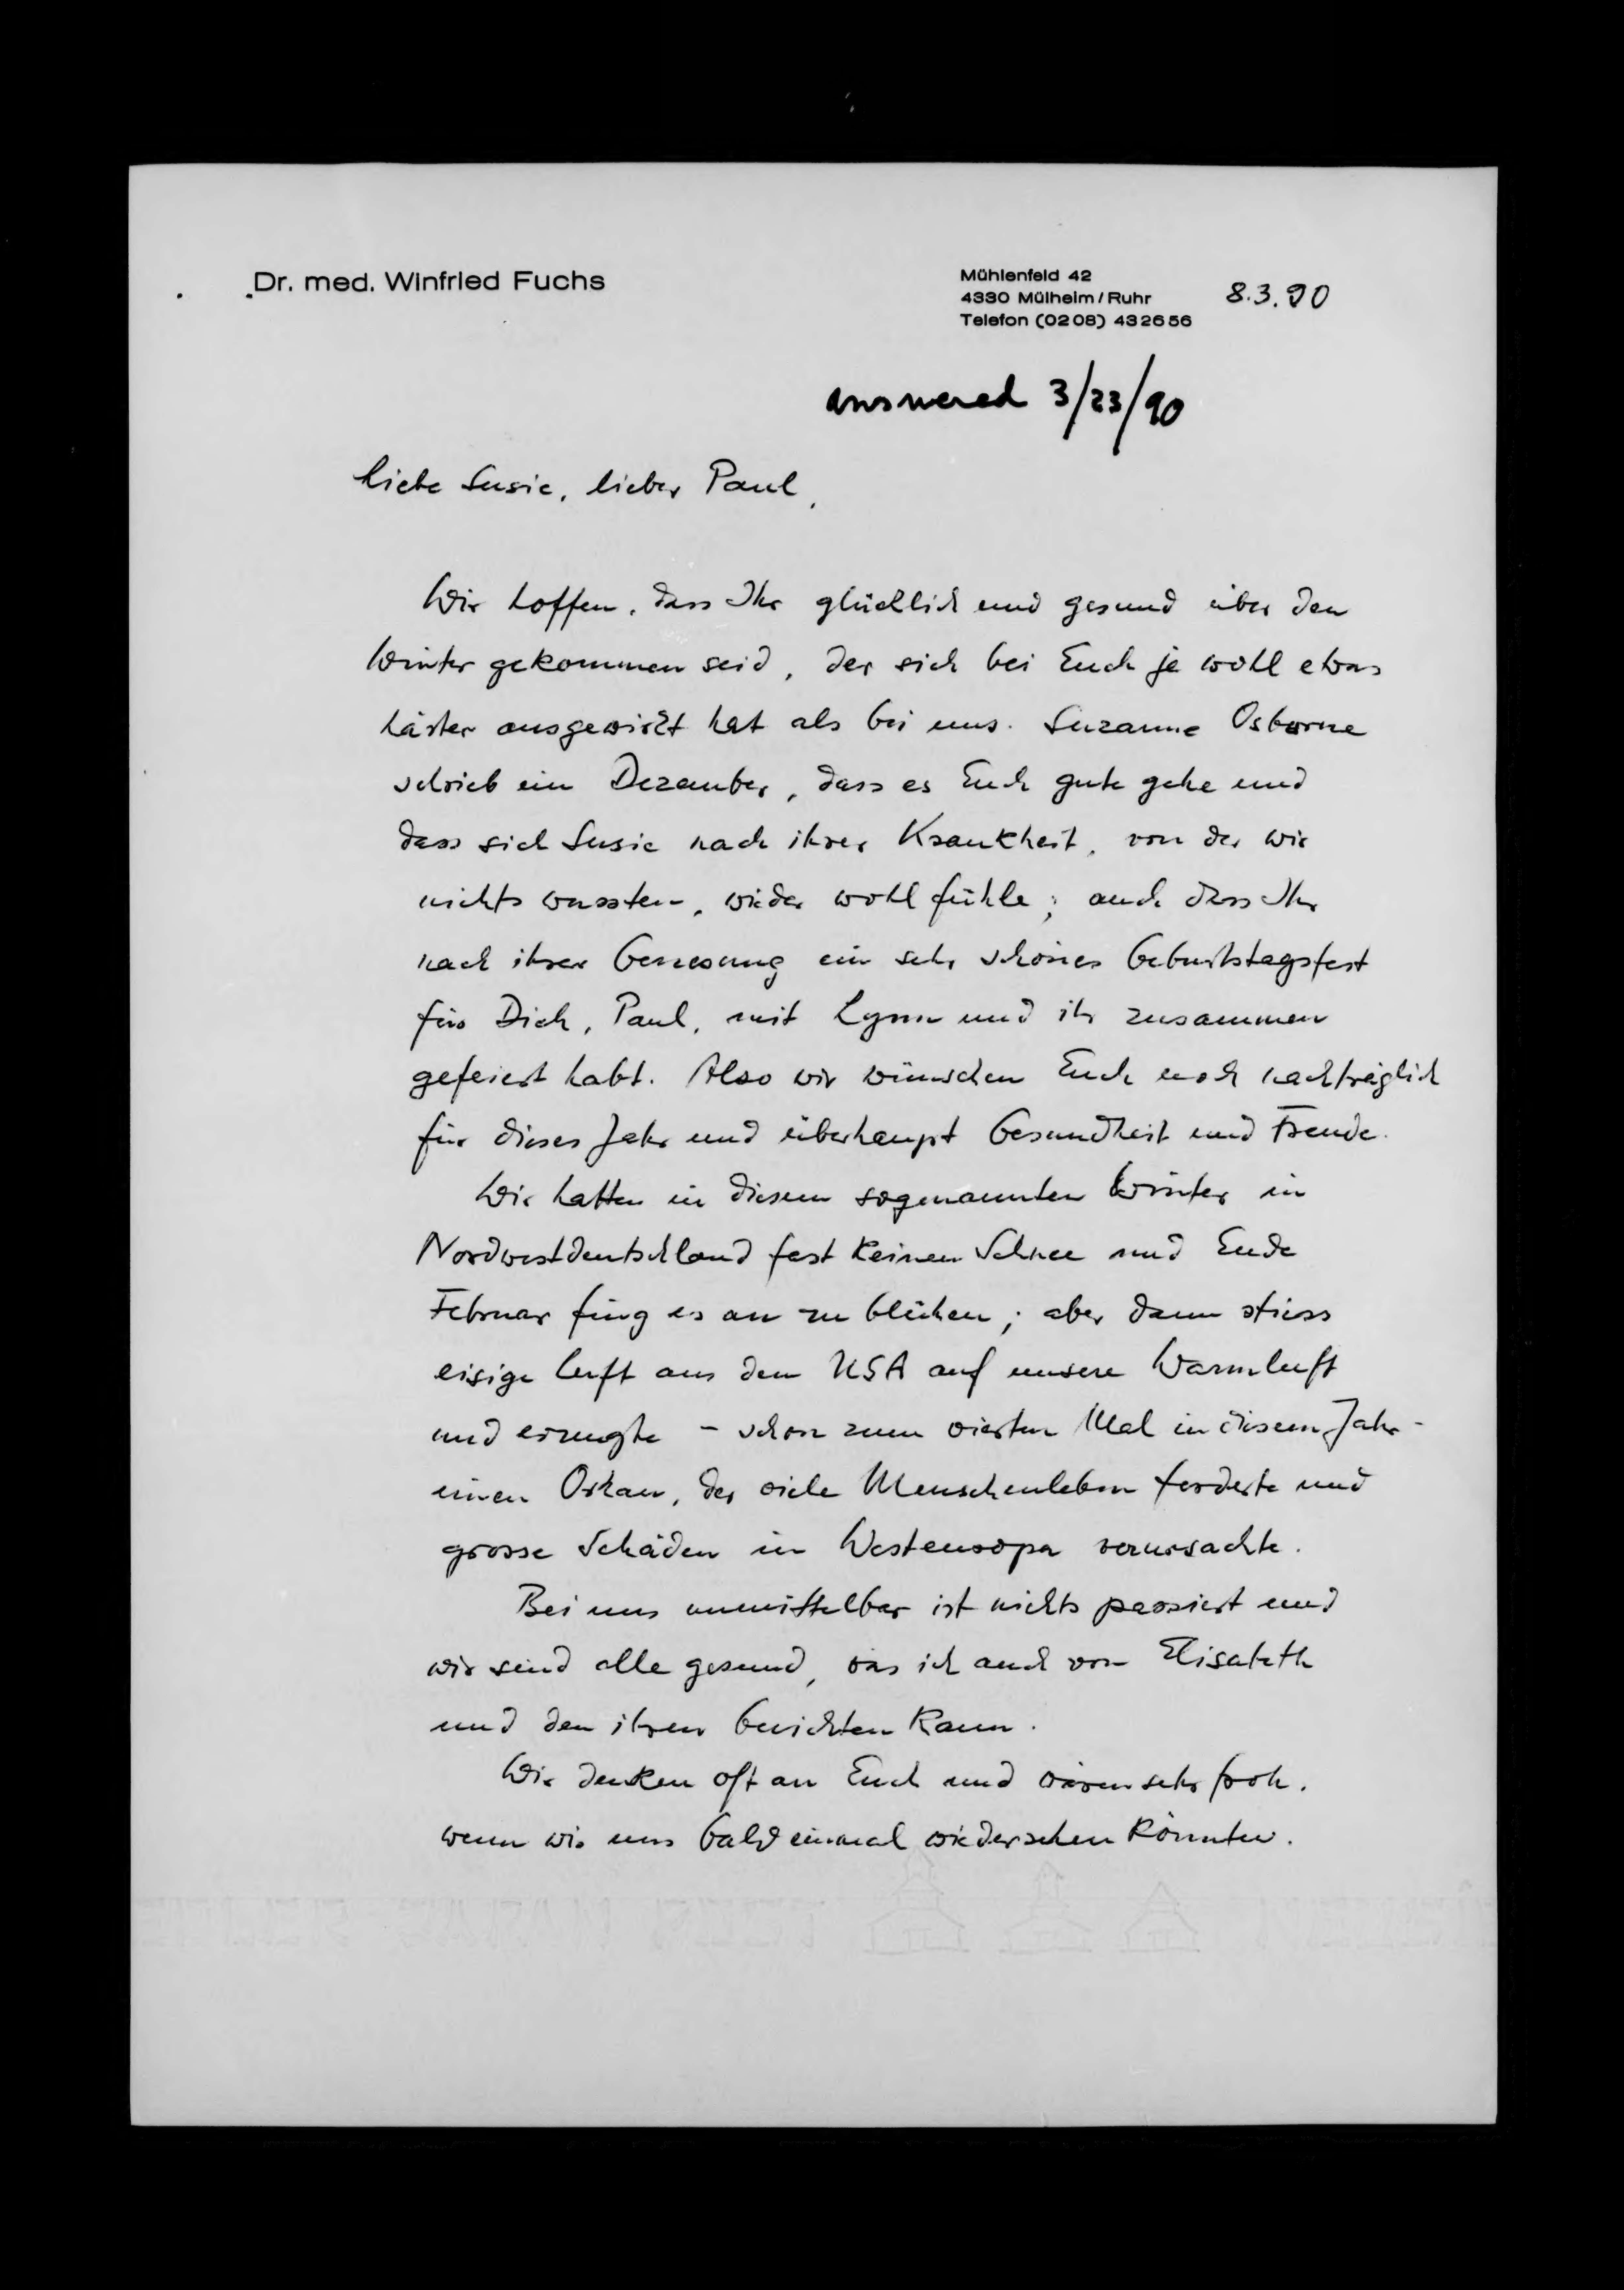 Dr. med. Winfried Fuchs
Mühlenfeld 42
4330 Mülheim/Ruhr
Telefon (0208) 432656
8.3.90
answered 3/23/90
Liebe Susie, lieber Paul,
Wir hoffen, dass Ihr glücklich und gesund über den
Winter gekommen seid, der sich bei Euch ja wohl etwas
härter ausgewirkt hat als bei uns. Suzanne Osborne
schrieb im Dezember, dass es Euch gute gehe und
dass sich Susie nach ihrer Krankheit, von der wir
nichts wussten, wieder wohl fühle; auch dass Ihr
nach ihrer Genesung ein sehr schönes Geburtstagsfest
für Dich, Paul, mit Lynn und ihr zusammen
gefeiert habt. Also wir wünschen Euch noch nachträglich
für dieses Jahr und überhaupt Gesundheit und Freude.
Wir hatten in diesem sogenannten Winter in
Nordwestdeutschland fast keinen Schnee und Ende
Februar fing es an zu blühen; aber dann stiess
eisige Luft aus den USA auf unsere Warmluft
und erzeugte - schon zum vierten Mal in diesem Jahr -
einen Orkan, der viele Menschenleben forderte und
grosse Schäden in Westeuropa verursachte.
Bei uns unmittelbar ist nichts passiert und
wir sind alle gesund, was ich auch von Elisabeth
und den ihren berichten kann.
Wir denken oft an Euch und wären sehr froh,
wenn wir uns bald einmal wiedersehen könnten.